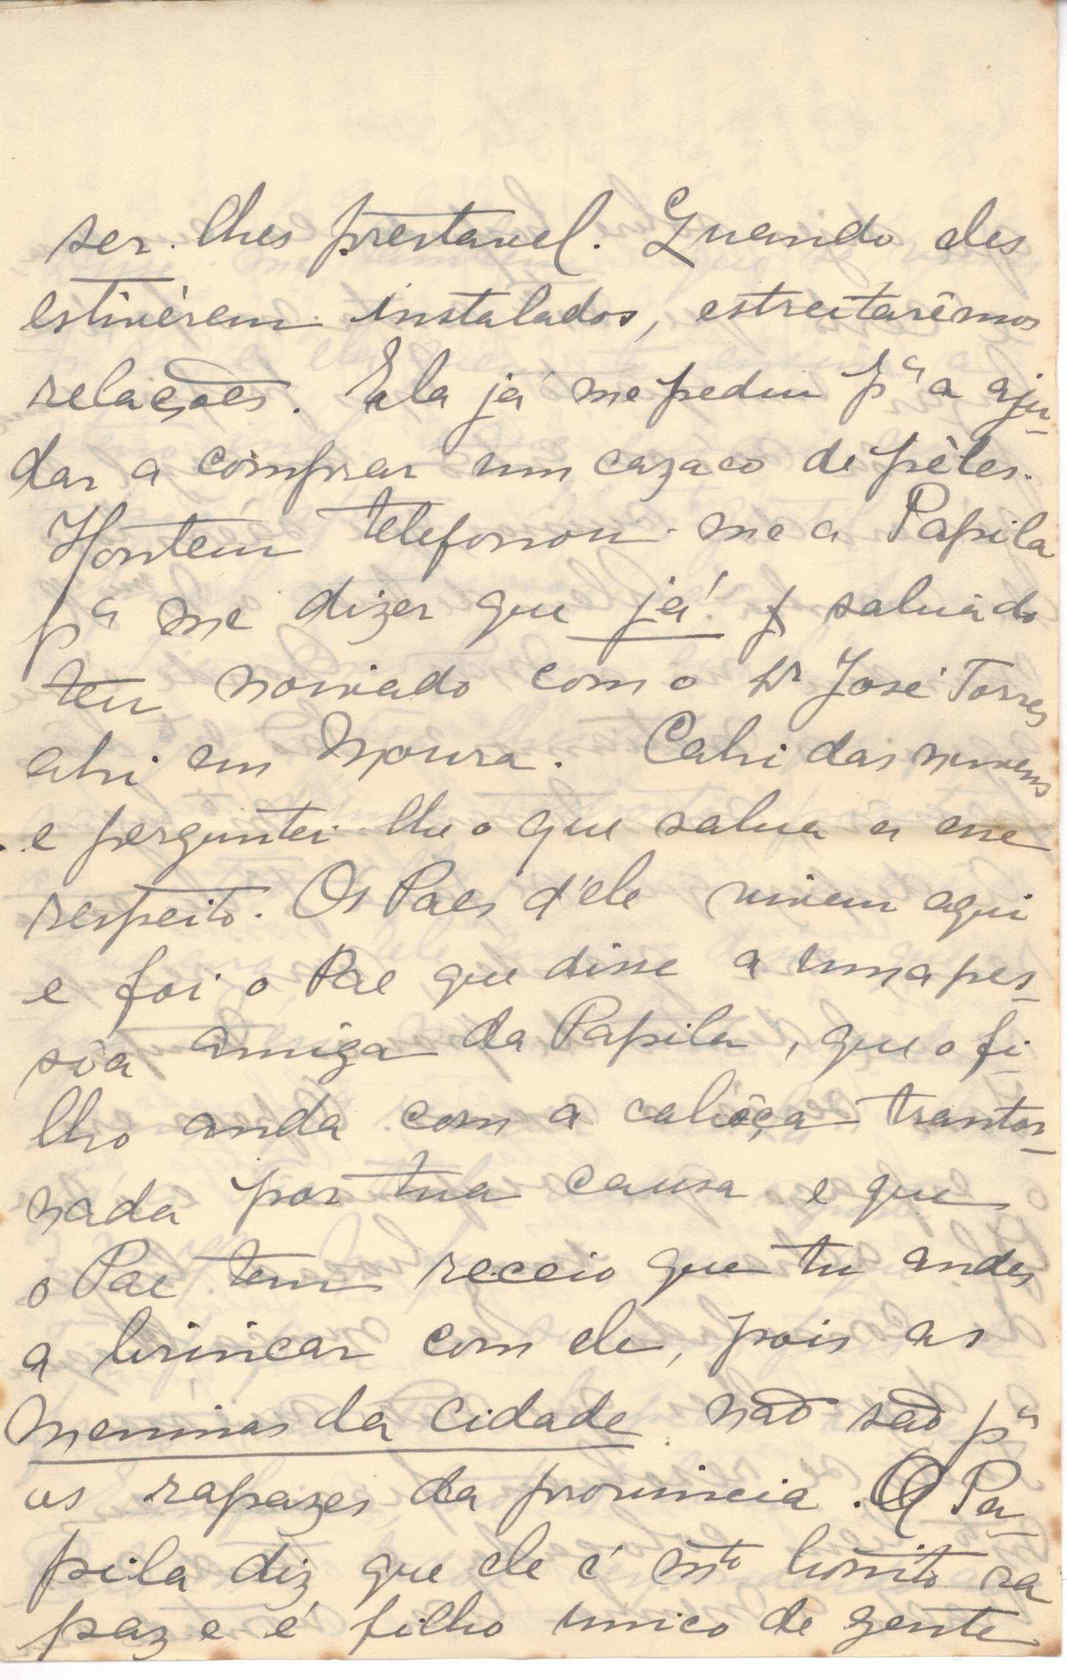 ser-lhes prestavel. Quando eles
estivérem instalados, estreitarêmos
relações. Ela já me pediu pª a aju-
dar a comprar um cazaco de péles.
Hontem telefonou-me a Papila
pª me dizer que já! saluido
teu noivado com o Dr José Torres
ahi em Moura. Cahi das nuvens
e perguntei-lhe o que sabia a esse
respeito. Os Paes d'ele vivem aqui
e foi o Pae que disse a uma pes-
sôa amiga da Papila, que o fi-
lho anda com a cabêça trantor-
nada por tua causa e que
o Pae tem receio que tu andes
a brincar com ele, pois as
meninas da cidade não são pª
os rapazes da provincia. A Pa-
pila diz que ele é mto bonito ra
paz e é filho unico de gente